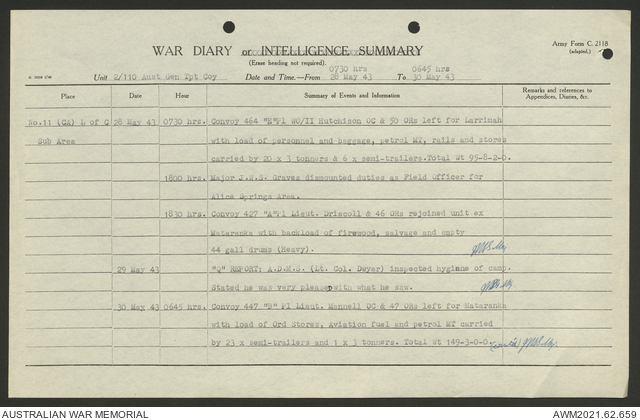 Army Form C. 2118
(adapted.)
WAR DIARY or INTELLIGENCE SUMMARY
(Erase heading not required).
0730 hrs 0645 hrs
Unit 2/110 Aust Gen Tpt Coy Date and Time.—From 28 May 43 To 30 May 43
Place Date Hour Summary of Events and Information Remarks and references to Appendices, Diaries, &c.
No.11 (CA) L of C 28 May 43 0730 hrs. Convoy 464 "E"Pl WO/II Hutchison OC & 50 ORs left for Larrimah
Sub Area with load of personnel and baggage, petrol MT, rails and stores
carried by 20 x 3 tonners & 6 x semi-trailers.Total Wt 95-8-2-0.
1800 hrs. Major J.W.S. Graves dismounted duties as Field Officer for
Alice Springs Area.
1830 hrs. Convoy 427 "A"Pl Lieut. Driscoll & 46 ORs rejoined unit ex
Mataranka with backload of firewood, salvage and empty
44 gall drums (Heavy).
29 May 43 "Q" REPORT: A.D.M.S. (Lt. Col. Dwyer) inspected hygiene of camp.
Stated he was very pleased with what he saw.
30 May 43 0645 hrs. Convoy 447 "B" Pl Lieut. Mannell OC & 47 ORs left for Mataranka
with load of Ord Stores, Aviation fuel and petrol MT carried
by 23 x semi-trailers and 1 x 3 tonners. Total Wt 149-3-0-0.
AUSTRALIAN WAR MEMORIAL AWM2021.62.659